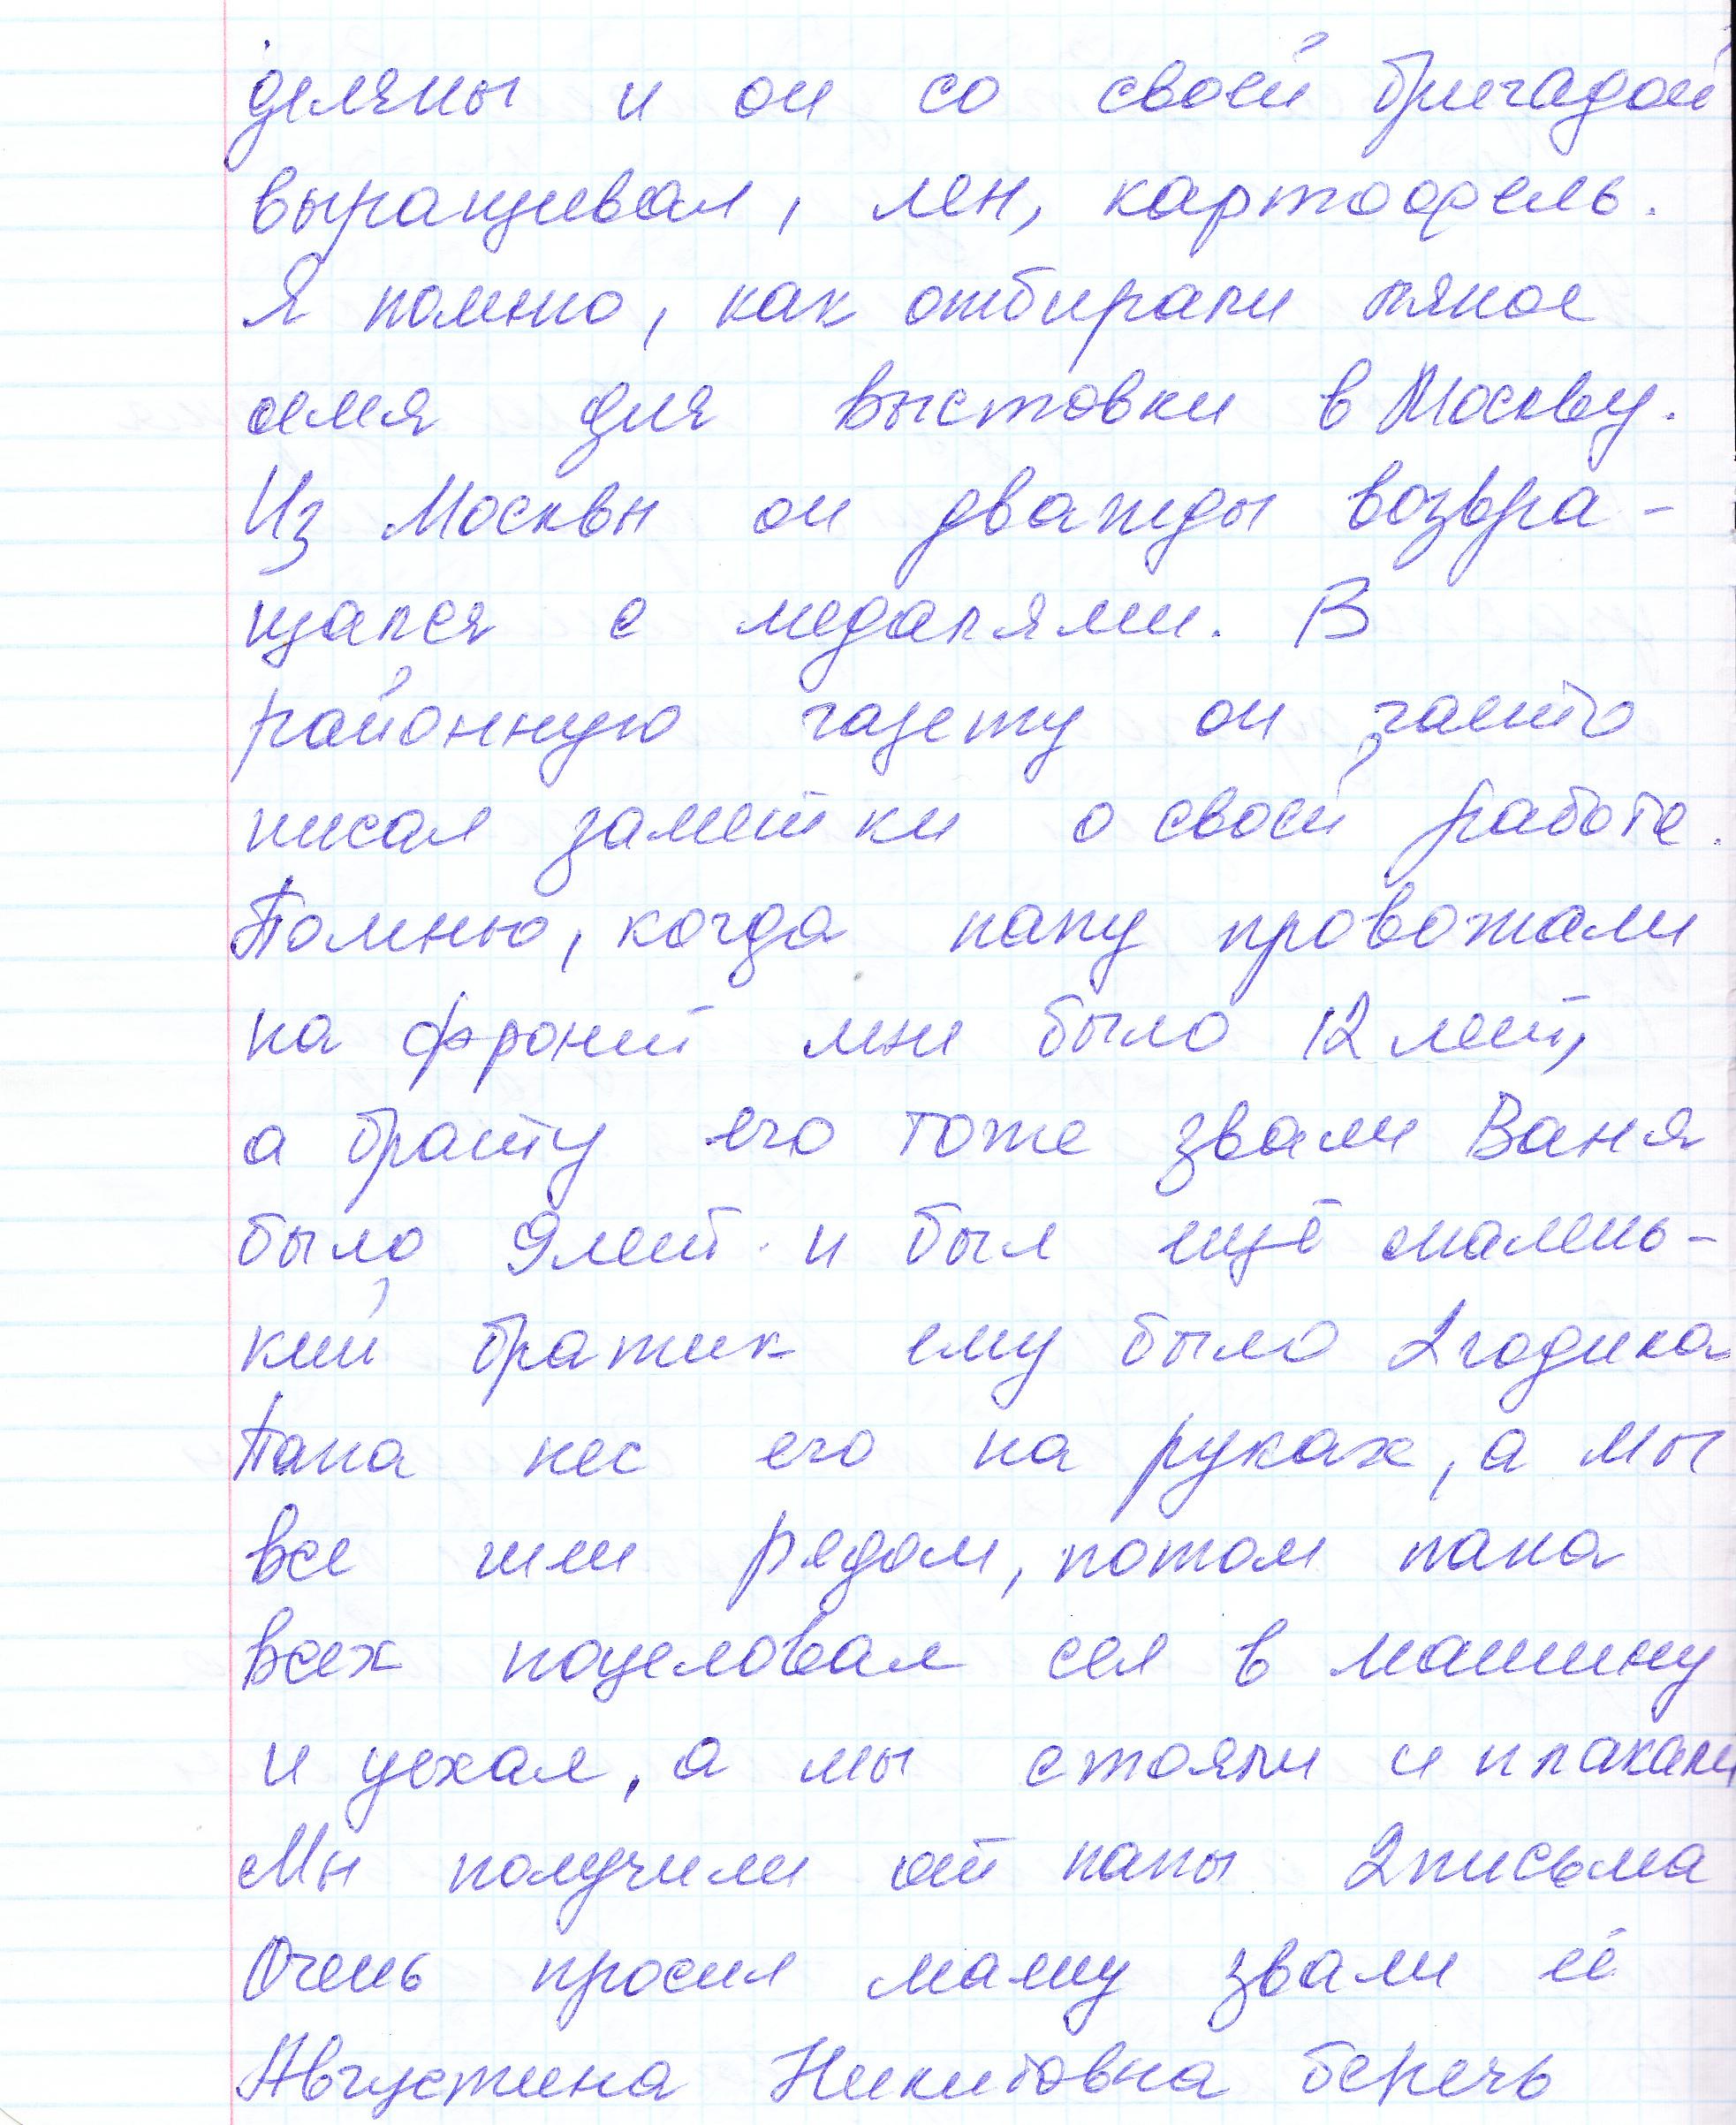 деляны и он со своей бригадой
выращивал, лен, картоофель.
Я помню, как отбирали льяное
семя для выстовки в Москву.
Из Москвы он дважды возвра-
щался с медалями. В
районную газету он часто
писал заметки о своей работе.
Помню, когда папу провожали
на фронт мне было 12 лет,
а брату его тоже звали Ваня
было 9 лет. и был ещё малень-
кий братик ему было 2 годика
Папа нес его на руках, а мы
все шли рядом, потом папа
всех поцеловал сел в машину
и уехал, а мы стояли и плакали
Мы получили от папы 2 письма
Очень просил маму звали её
Августина Никитовна беречь